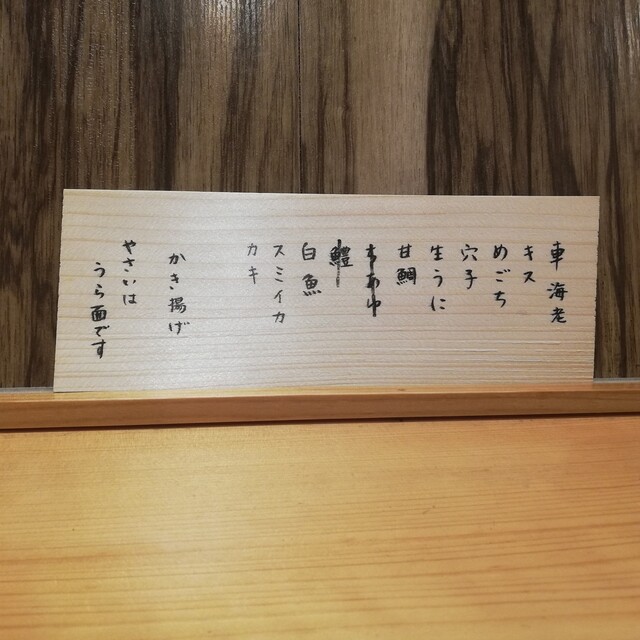 車海老
キス
めごち
穴子
生うに
甘鯛
鱧
白魚
スミイカ
カキ
かき揚げ
やさいは
うら面です